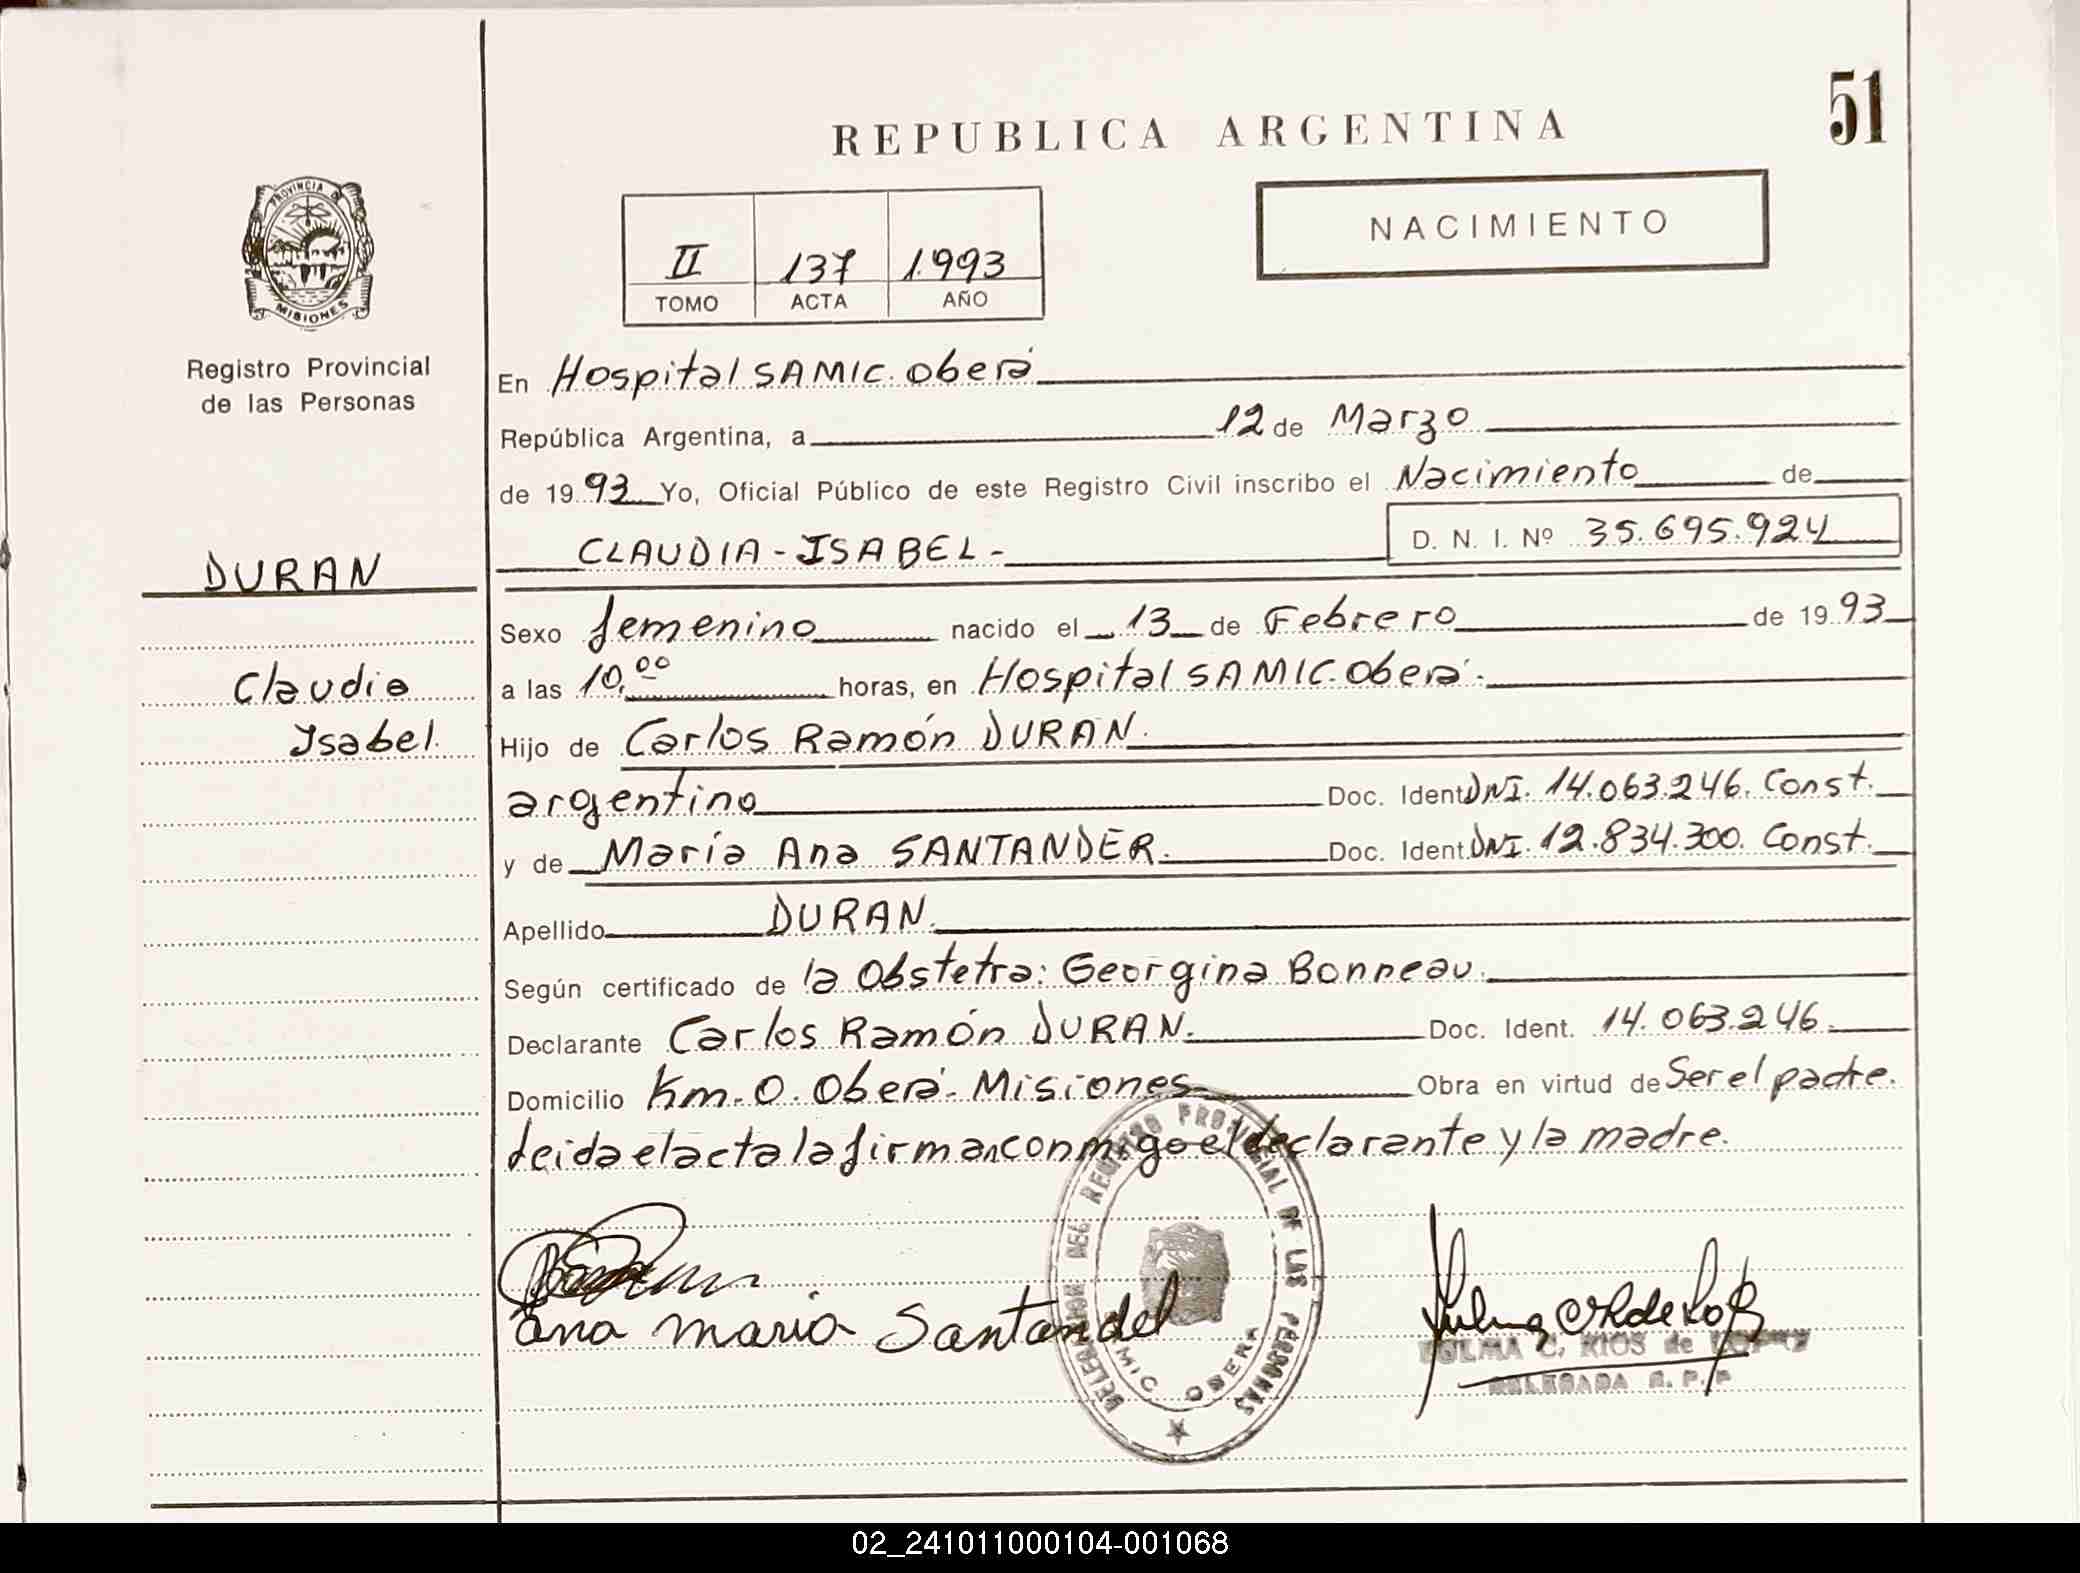 51
REPUBLICA ARGENTINA
PROVINCIA DE
MISIONES
NACIMIENTO
II 137 1993
TOMO ACTA AÑO
Registro Provincial
de las Personas
En Hospital SAMIC. Oberá
República Argentina, a 12 de Marzo
de 1993 Yo, Oficial Público de este Registro Civil inscribo el Nacimiento de
CLAUDIA-ISABEL- D. N. I. Nº 35.695.924
DURAN
Claudia
Isabel.
Sexo femenino nacido el 13 de Febrero de 1993
a las 10.00 horas, en Hospital SAMIC. Oberá.
Hijo de Carlos Ramón DURAN.
argentino Doc. Ident. DNI. 14.063.246. Const.
y de María Ana SANTANDER. Doc. Ident. DNI. 12.834.300. Const.
Apellido DURAN.
Según certificado de la Obstetra: Georgina Bonneau.
Declarante Carlos Ramón DURAN. Doc. Ident. 14.063.246.
Domicilio Km. 0. Oberá. Misiones Obra en virtud de Ser el padre.
Leida el acta la firman conmigo el declarante y la madre.
DELEGACION DEL REGISTRO PROVINCIAL DE LAS PERSONAS
SAMIC OBERA
Ana maria Santander
C. RIOS de LOPEZ
DELEGADA R. P. P
02_241011000104-001068